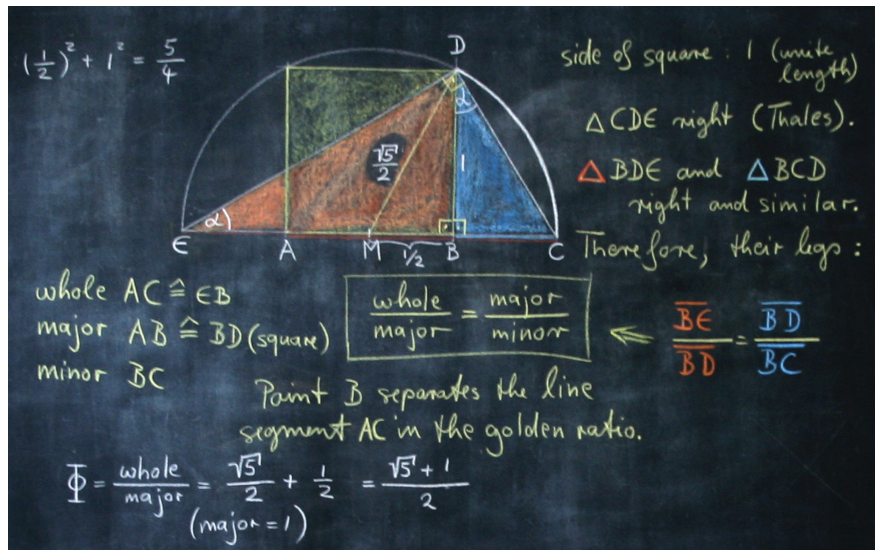 (1/2)² + 1² = 5/4
D
side of square : 1 (unite
length)
△CDE right (Thales).
△BDE and △BCD
right and similar.
Therefore, their legs :
α
√5/2
1
α
E A M B C
1/2
whole AC ≙ EB
major AB ≙ BD (square)
minor BC
whole/major = major/minor
⇐ BE/BD = BD/BC
Point B separates the line
segment AC in the golden ratio.
Φ = whole/major = √5/2 + 1/2 = √5 + 1/2
(major = 1)